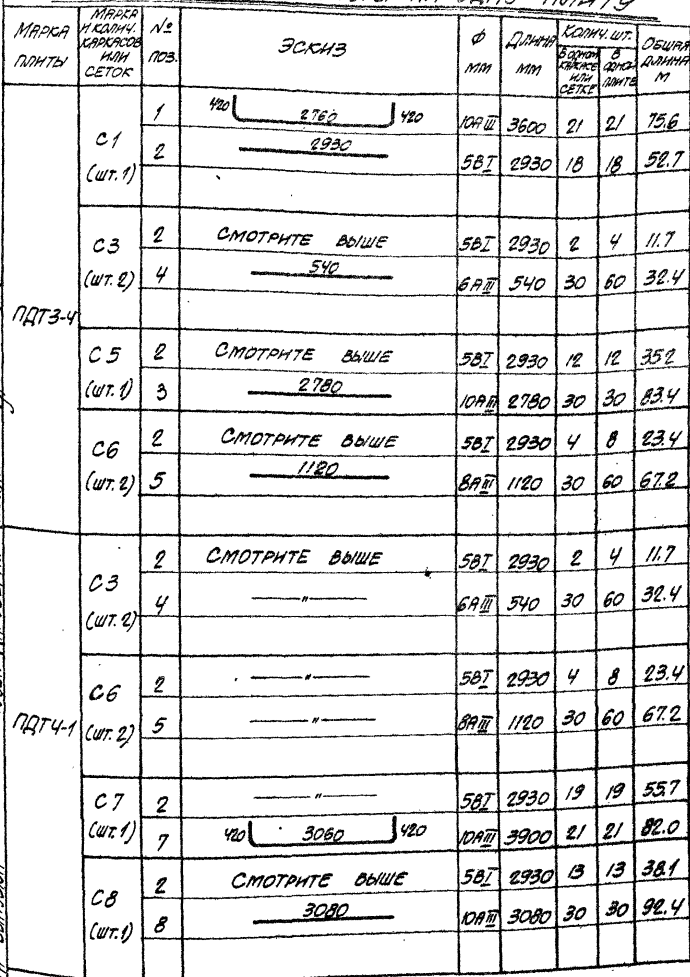 НА ОДНУ ПЛИТУ
МАРКА ПЛИТЫ | МАРКА И КОЛИЧ. КАРКАСОВ ИЛИ СЕТОК | № ПОЗ. | ЭСКИЗ | Ф ММ | ДЛИНА ММ | КОЛИЧ. ШТ. В ОДНОМ КАРКАСЕ ИЛИ СЕТКЕ | В ОДНОЙ ПЛИТЕ | ОБЩАЯ ДЛИНА М
ПДТ3-4
С1 (шт. 1)
1 420 2760 420 10АIII 3600 21 21 75.6
2 2930 5ВI 2930 18 18 52.7
С3 (шт. 2)
2 СМОТРИТЕ ВЫШЕ 5ВI 2930 2 4 11.7
4 540 6АIII 540 30 60 32.4
С5 (шт. 1)
2 СМОТРИТЕ ВЫШЕ 5ВI 2930 12 12 35.2
3 2780 10АIII 2780 30 30 83.4
С6 (шт. 2)
2 СМОТРИТЕ ВЫШЕ 5ВI 2930 4 8 23.4
5 1120 8АIII 1120 30 60 67.2
ПДТ4-1
С3 (шт. 2)
2 СМОТРИТЕ ВЫШЕ 5ВI 2930 2 4 11.7
4 —"— 6АIII 540 30 60 32.4
С6 (шт. 2)
2 —"— 5ВI 2930 4 8 23.4
5 —"— 8АIII 1120 30 60 67.2
С7 (шт. 1)
2 —"— 5ВI 2930 19 19 55.7
7 420 3060 420 10АIII 3900 21 21 82.0
С8 (шт. 1)
2 СМОТРИТЕ ВЫШЕ 5ВI 2930 13 13 38.1
8 3080 10АIII 3080 30 30 92.4